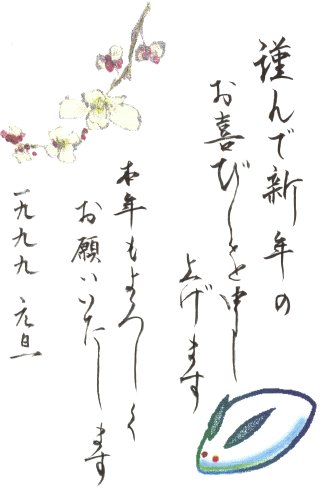 謹んで新年の
お喜びを申し
上げます
本年もよろしく
お願いいたします
一九九九 元旦